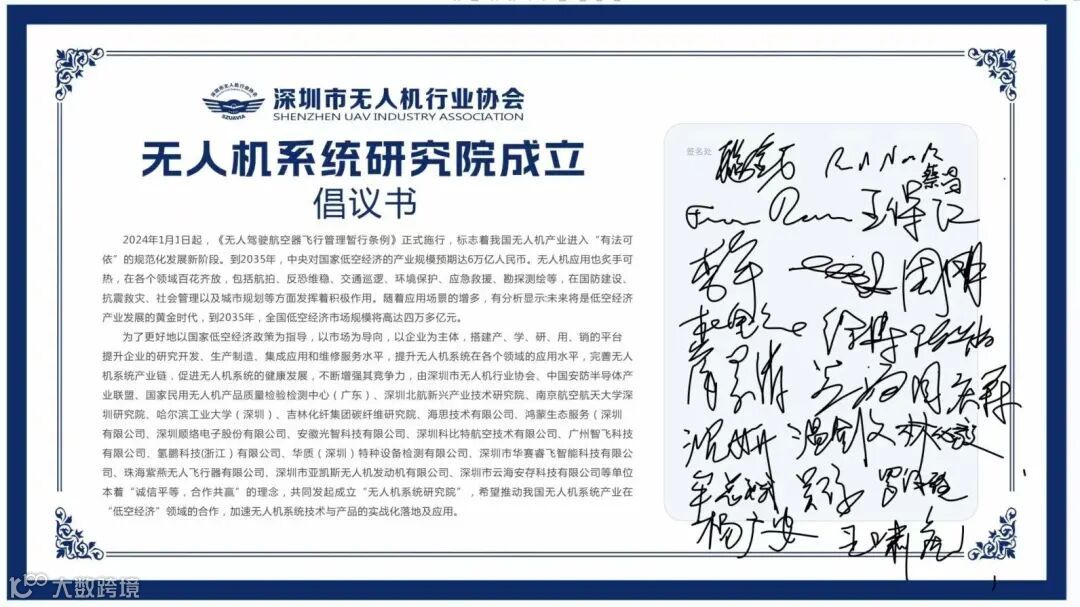 深圳市无人机行业协会
SZUAVIA
深圳市无人机行业协会
SHENZHEN UAV INDUSTRY ASSOCIATION
无人机系统研究院成立
倡议书
2024年1月1日起，《无人驾驶航空器飞行管理暂行条例》正式施行，标志着我国无人机产业进入“有法可
依”的规范化发展新阶段。到2035年，中央对国家低空经济的产业规模预期达6万亿人民币。无人机应用也炙手可
热，在各个领域百花齐放，包括航拍、反恐维稳、交通巡逻、环境保护、应急救援、勘探测绘等，在国防建设、
抗震救灾、社会管理以及城市规划等方面发挥着积极作用。随着应用场景的增多，有分析显示:未来将是低空经济
产业发展的黄金时代，到2035年，全国低空经济市场规模将高达四万多亿元。
为了更好地以国家低空经济政策为指导，以市场为导向，以企业为主体，搭建产、学、研、用、销的平台
提升企业的研究开发、生产制造、集成应用和维修服务水平，提升无人机系统在各个领域的应用水平，完善无人
机系统产业链，促进无人机系统的健康发展，不断增强其竞争力，由深圳市无人机行业协会、中国安防半导体产
业联盟、国家民用无人机产品质量检验检测中心（广东）、深圳北航新兴产业技术研究院、南京航空航天大学深
圳研究院、哈尔滨工业大学（深圳）、吉林化纤集团碳纤维研究院、海思技术有限公司、鸿蒙生态服务（深圳
有限公司、深圳顺络电子股份有限公司、安徽光智科技有限公司、深圳科比特航空技术有限公司、广州智飞科技
有限公司、氢鹏科技(浙江）有限公司、华质（深圳）特种设备检测有限公司、深圳市华赛睿飞智能科技有限公
司、珠海紫燕无人飞行器有限公司、深圳市亚凯斯无人机发动机有限公司、深圳市云海安存科技有限公司等单位
本着“诚信平等，合作共赢”的理念，共同发起成立“无人机系统研究院”，希望推动我国无人机系统产业在
“低空经济”领域的合作，加速无人机系统技术与产品的实战化落地及应用。
签名处
蔡昌
李军
沈妍 温剑文
杨广安 王啸
大数跨境